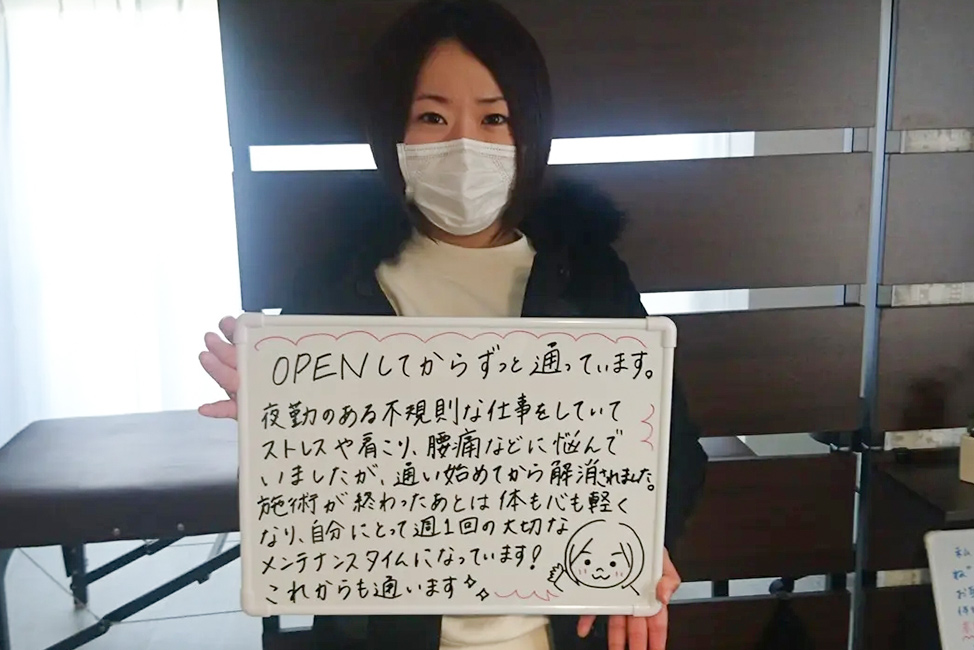 OPENしてからずっと通っています。
夜勤のある不規則な仕事をしていて
ストレスや肩こり、腰痛などに悩んで
いましたが、通い始めてから解消されました。
施術が終わったあとは体も心も軽く
なり、自分にとって週1回の大切な
メンテナンスタイムになっています!
これからも通います